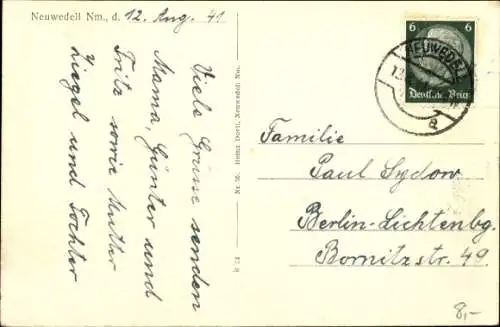 Neuwedell Nm., d. 12. Aug. 41
Viele Grüsse senden
Mama, Günter und
Fritz sowie Mutter
Ziegel und Tochter
Nr. 56. Heinz Dortl, Neuwedell Nm.
R 22
6 6
Deutsches Reich
NEUWEDELL
12.
a
Familie
Paul Sydow
Berlin-Lichtenbg.
Bornitzstr. 49.
8,-